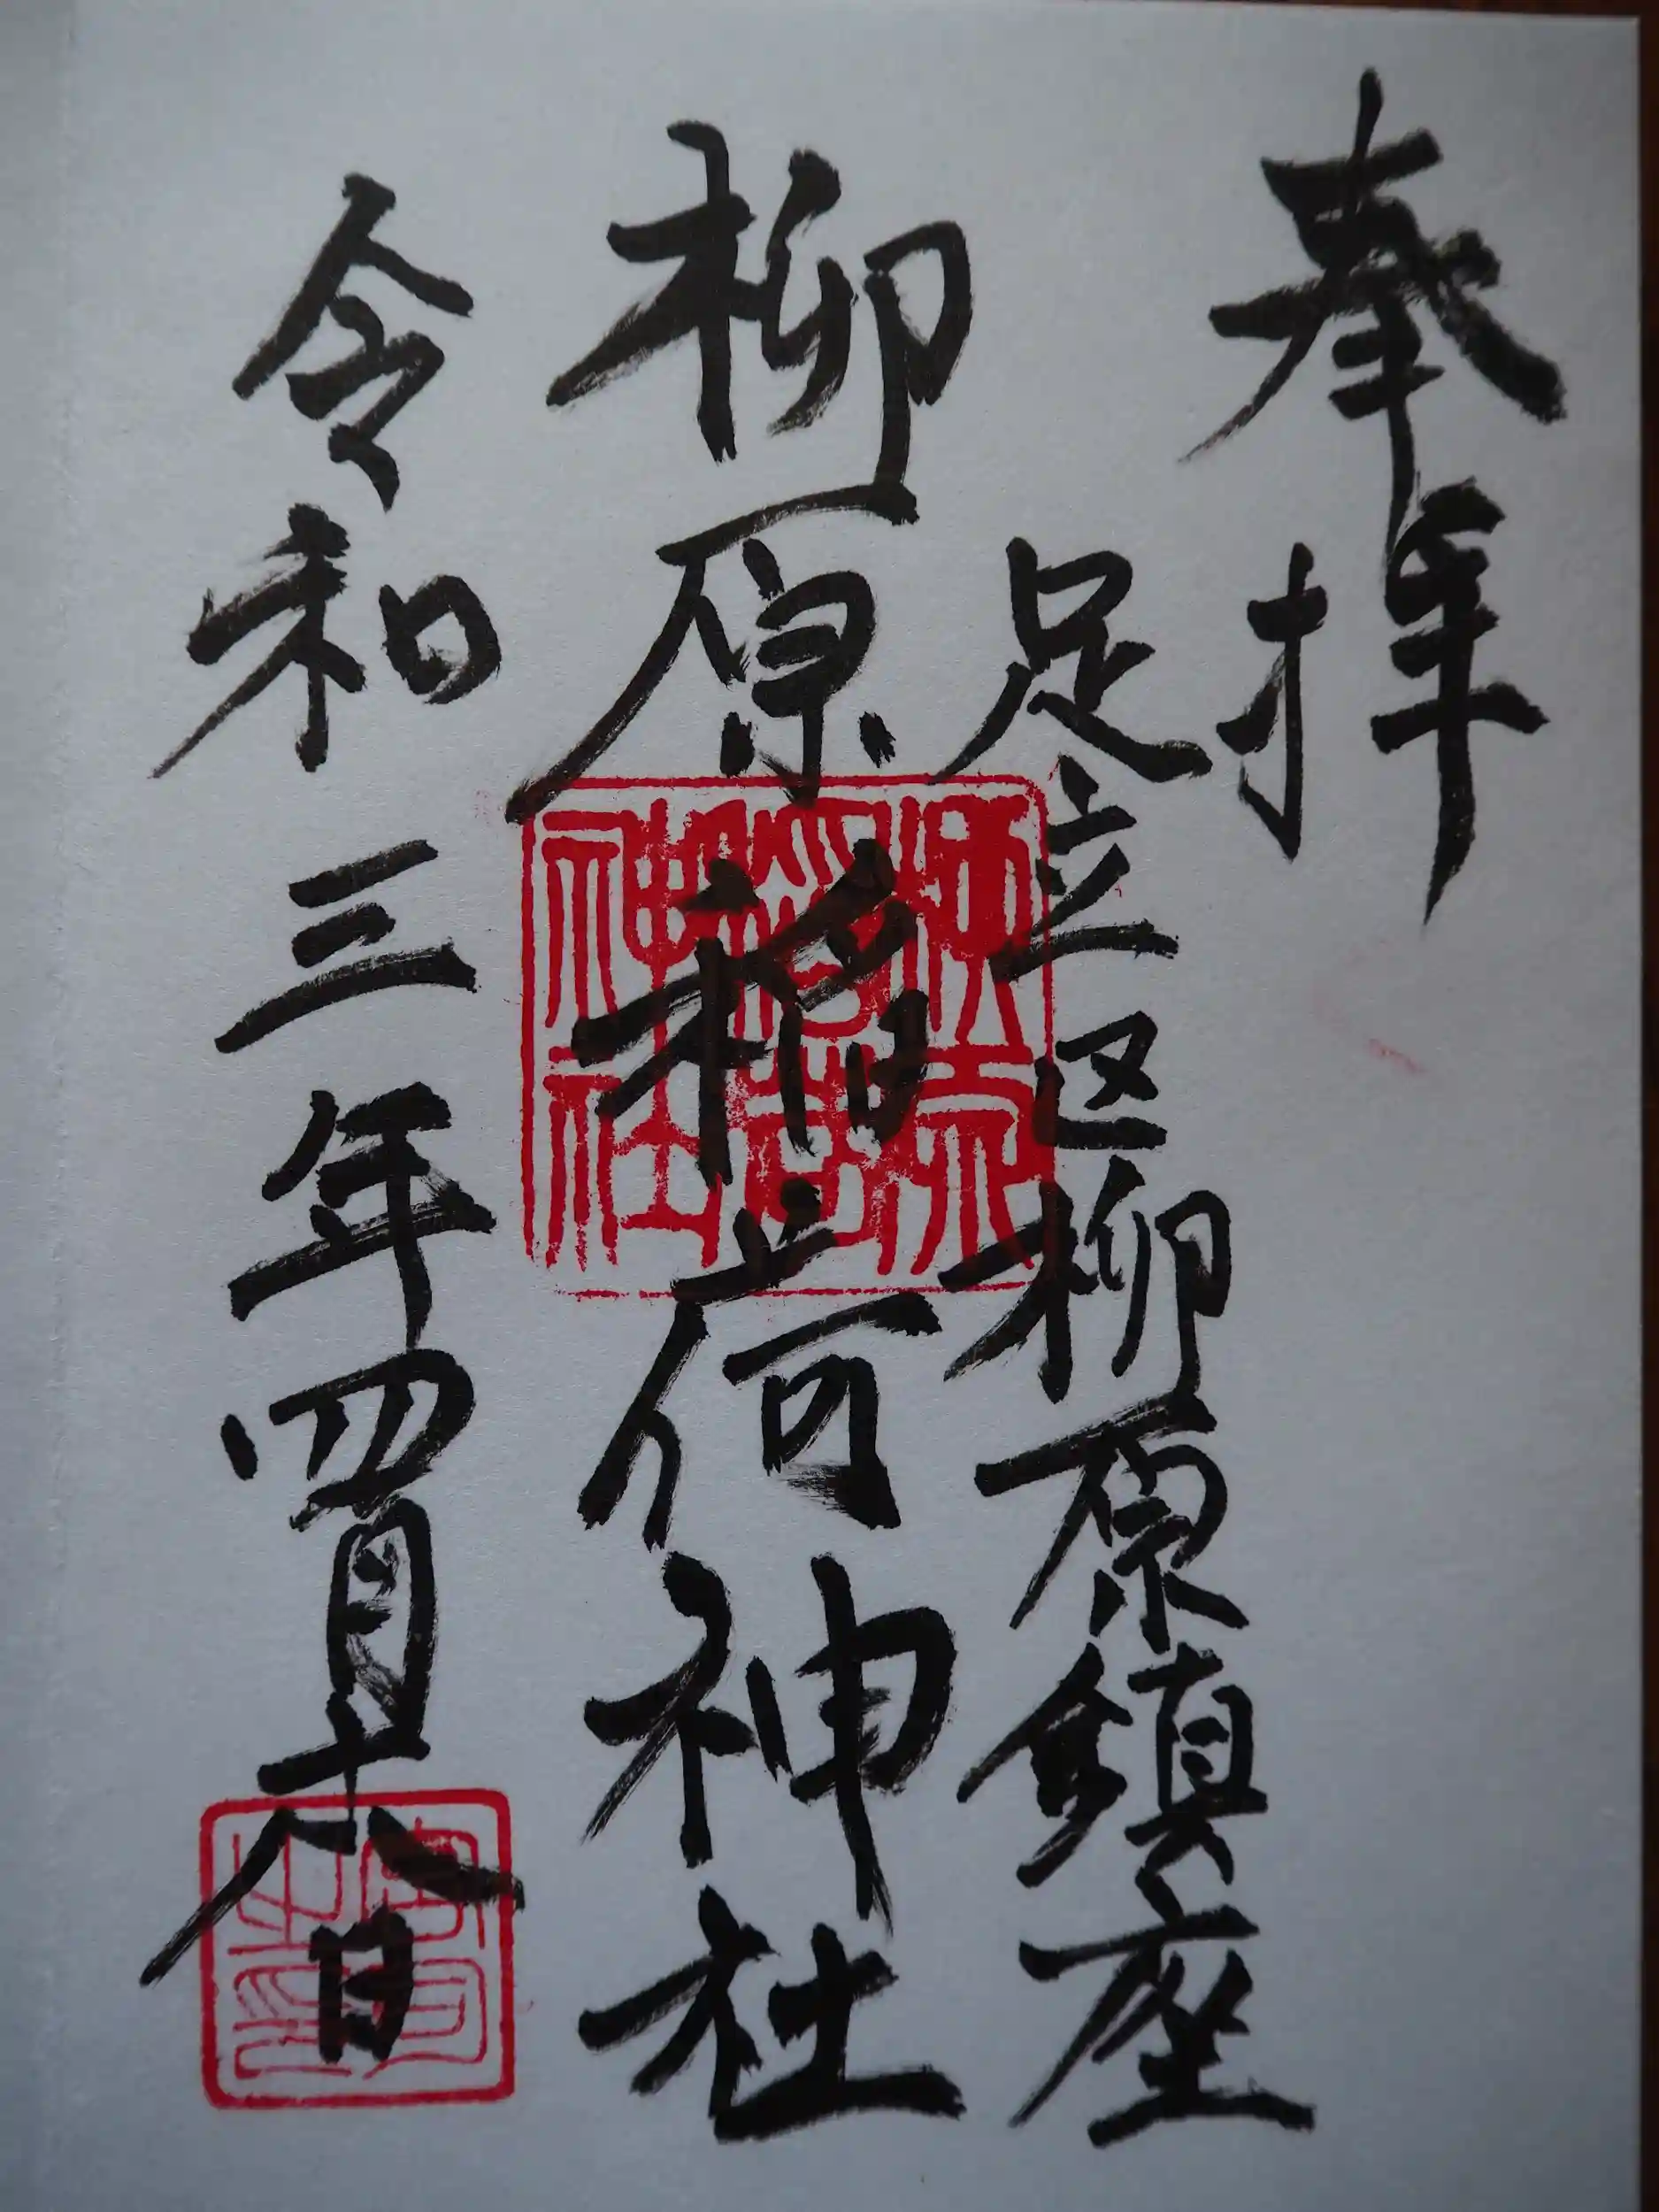 奉拝
足立区柳原鎮座
柳原稲荷神社
稲荷
神社
令和三年四月十八日
宮司
之印